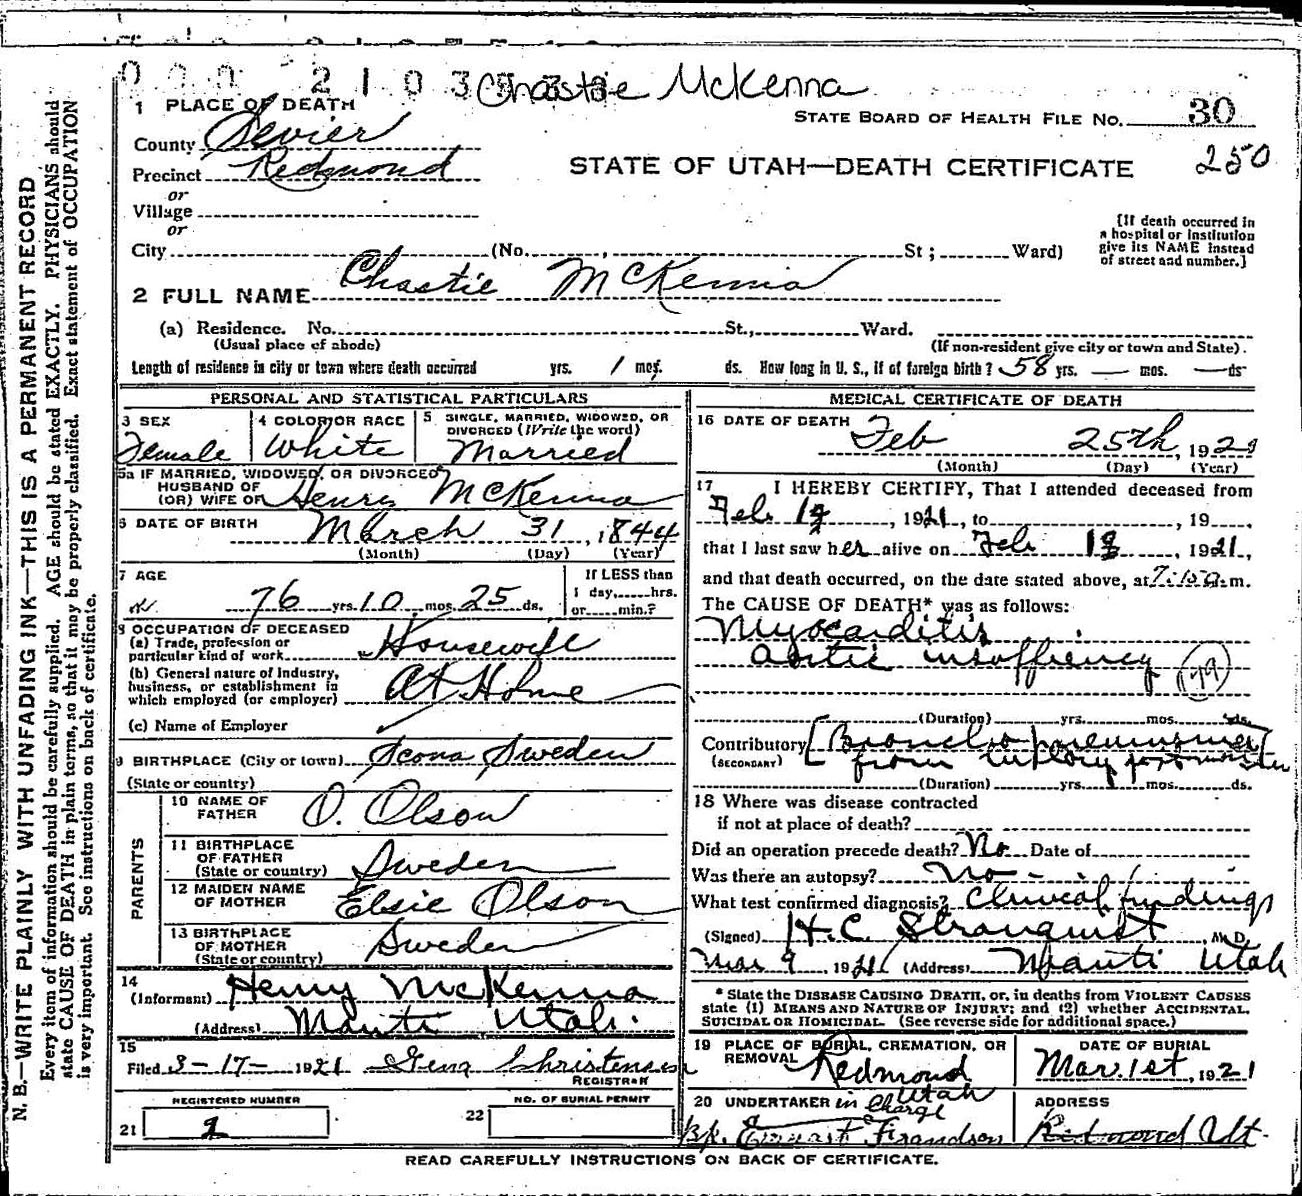 Chastie McKenna
1 PLACE OF DEATH
STATE BOARD OF HEALTH FILE No. 30
County Sevier
250
Precinct Redmond
STATE OF UTAH—DEATH CERTIFICATE
or
Village
or
City (No. , St ; Ward)
[If death occurred in
a hospital or institution
give its NAME instead
of street and number.]
2 FULL NAME Chastie McKenna
(a) Residence. No. St., Ward.
(Usual place of abode)
(If non-resident give city or town and State).
Length of residence in city or town where death occurred yrs. 1 mos. ds. How long in U. S., if of foreign birth? 58 yrs. — mos. — ds
PERSONAL AND STATISTICAL PARTICULARS
3 SEX Female
4 COLOR OR RACE White
5 SINGLE, MARRIED, WIDOWED, OR
DIVORCED (Write the word)
Married
5a IF MARRIED, WIDOWED, OR DIVORCED
HUSBAND OF
(OR) WIFE OF Henry McKenna
6 DATE OF BIRTH March 31, 1844
(Month) (Day) (Year)
7 AGE
76 yrs. 10 mos. 25 ds.
If LESS than
1 day, hrs.
or min.?
8 OCCUPATION OF DECEASED
(a) Trade, profession or
particular kind of work Housewife
(b) General nature of Industry,
business, or establishment in
which employed (or employer) At Home
(c) Name of Employer
9 BIRTHPLACE (City or town) Scona Sweden
(State or country)
PARENTS
10 NAME OF
FATHER O. Olson
11 BIRTHPLACE
OF FATHER
(State or country) Sweden
12 MAIDEN NAME
OF MOTHER Elsie Olson
13 BIRTHPLACE
OF MOTHER
(State or country) Sweden
14
(Informant) Henry McKenna
(Address) Manti Utah.
15
Filed 3-17- 1921 Christensen
REGISTRAR
REGISTERED NUMBER
21
NO. OF BURIAL PERMIT
22
MEDICAL CERTIFICATE OF DEATH
16 DATE OF DEATH Feb 25th, 1921
(Month) (Day) (Year)
17 I HEREBY CERTIFY, That I attended deceased from
Feb , 1921, to , 19
that I last saw her alive on Feb , 1921,
and that death occurred, on the date stated above, at m.
The CAUSE OF DEATH* was as follows:
Myocarditis
aortic insuffiency
79
(Duration) yrs. mos. ds.
Contributory Broncho pneumonia
(SECONDARY) from
(Duration) yrs. mos. ds.
18 Where was disease contracted
if not at place of death?
Did an operation precede death? No Date of
Was there an autopsy? No -
What test confirmed diagnosis? Clinical findings
(Signed) H.C. Stranquist, M. D.
Mar 9, 1921 (Address) Manti Utah
* State the DISEASE CAUSING DEATH, or, in deaths from VIOLENT CAUSES
state (1) MEANS AND NATURE OF INJURY; and (2) whether ACCIDENTAL,
SUICIDAL OR HOMICIDAL. (See reverse side for additional space.)
19 PLACE OF BURIAL, CREMATION, OR
REMOVAL Redmond
Utah
DATE OF BURIAL
Mar. 1st, 1921
20 UNDERTAKER in Charge
Frandsen
ADDRESS
Redmond Ut.
READ CAREFULLY INSTRUCTIONS ON BACK OF CERTIFICATE.
N. B.—WRITE PLAINLY WITH UNFADING INK—THIS IS A PERMANENT RECORD
Every item of information should be carefully supplied. AGE should be stated EXACTLY. PHYSICIANS should
state CAUSE OF DEATH in plain terms, so that it may be properly classified. Exact statement of OCCUPATION
is very important. See instructions on back of certificate.